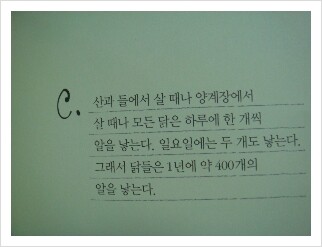 C. 산과 들에서 살 때나 양계장에서
살 때나 모든 닭은 하루에 한 개씩
알을 낳는다. 일요일에는 두 개도 낳는다.
그래서 닭들은 1년에 약 400개의
알을 낳는다.